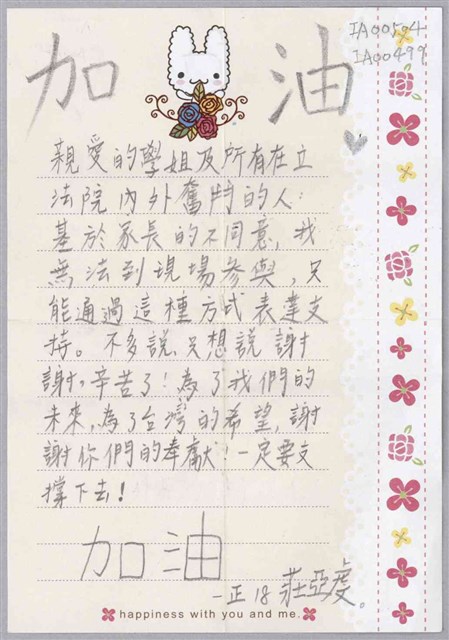 IA00504
IA00499
加油
親愛的學姐及所有在立
法院內外奮鬥的人:
基於家長的不同意,我
無法到現場參與,只
能通過這種方式表達支
持。不多說,只想說謝
謝,辛苦了!為了我們的
未來,為了台灣的希望,謝
謝你們的奉獻!一定要支
撐下去!
加油
一正18 莊亞虔。
happiness with you and me.